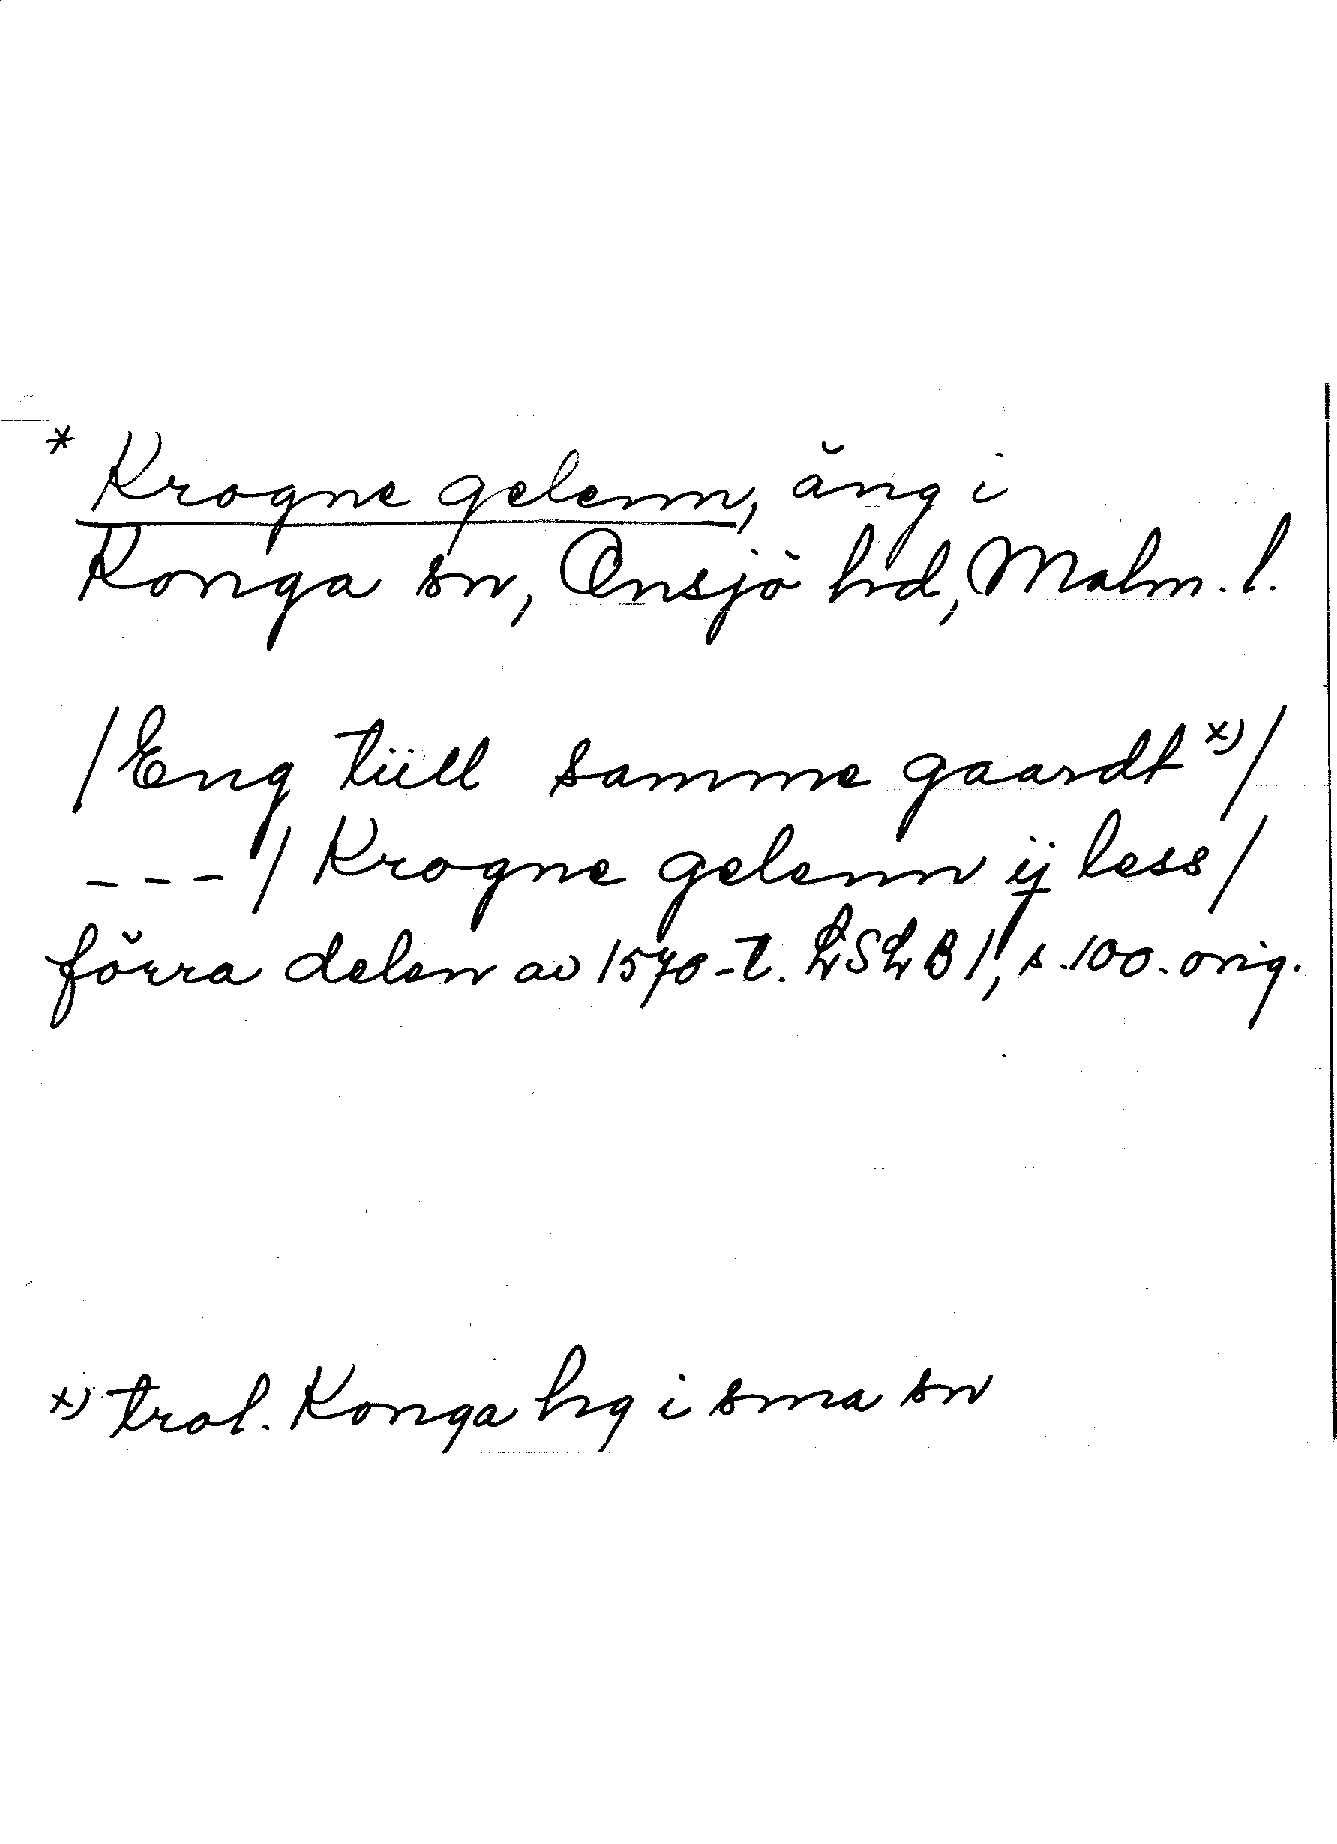 * Krogne gelenn, äng i
Konga sn, Onsjö hd, Malm. l.
/Eng tiill samme gaardt x)/
---/Krogne gelenn ij less/
förra delen av 1570-t. LSLB 1, s. 100. orig.
x) trol. Konga hg i sma sn